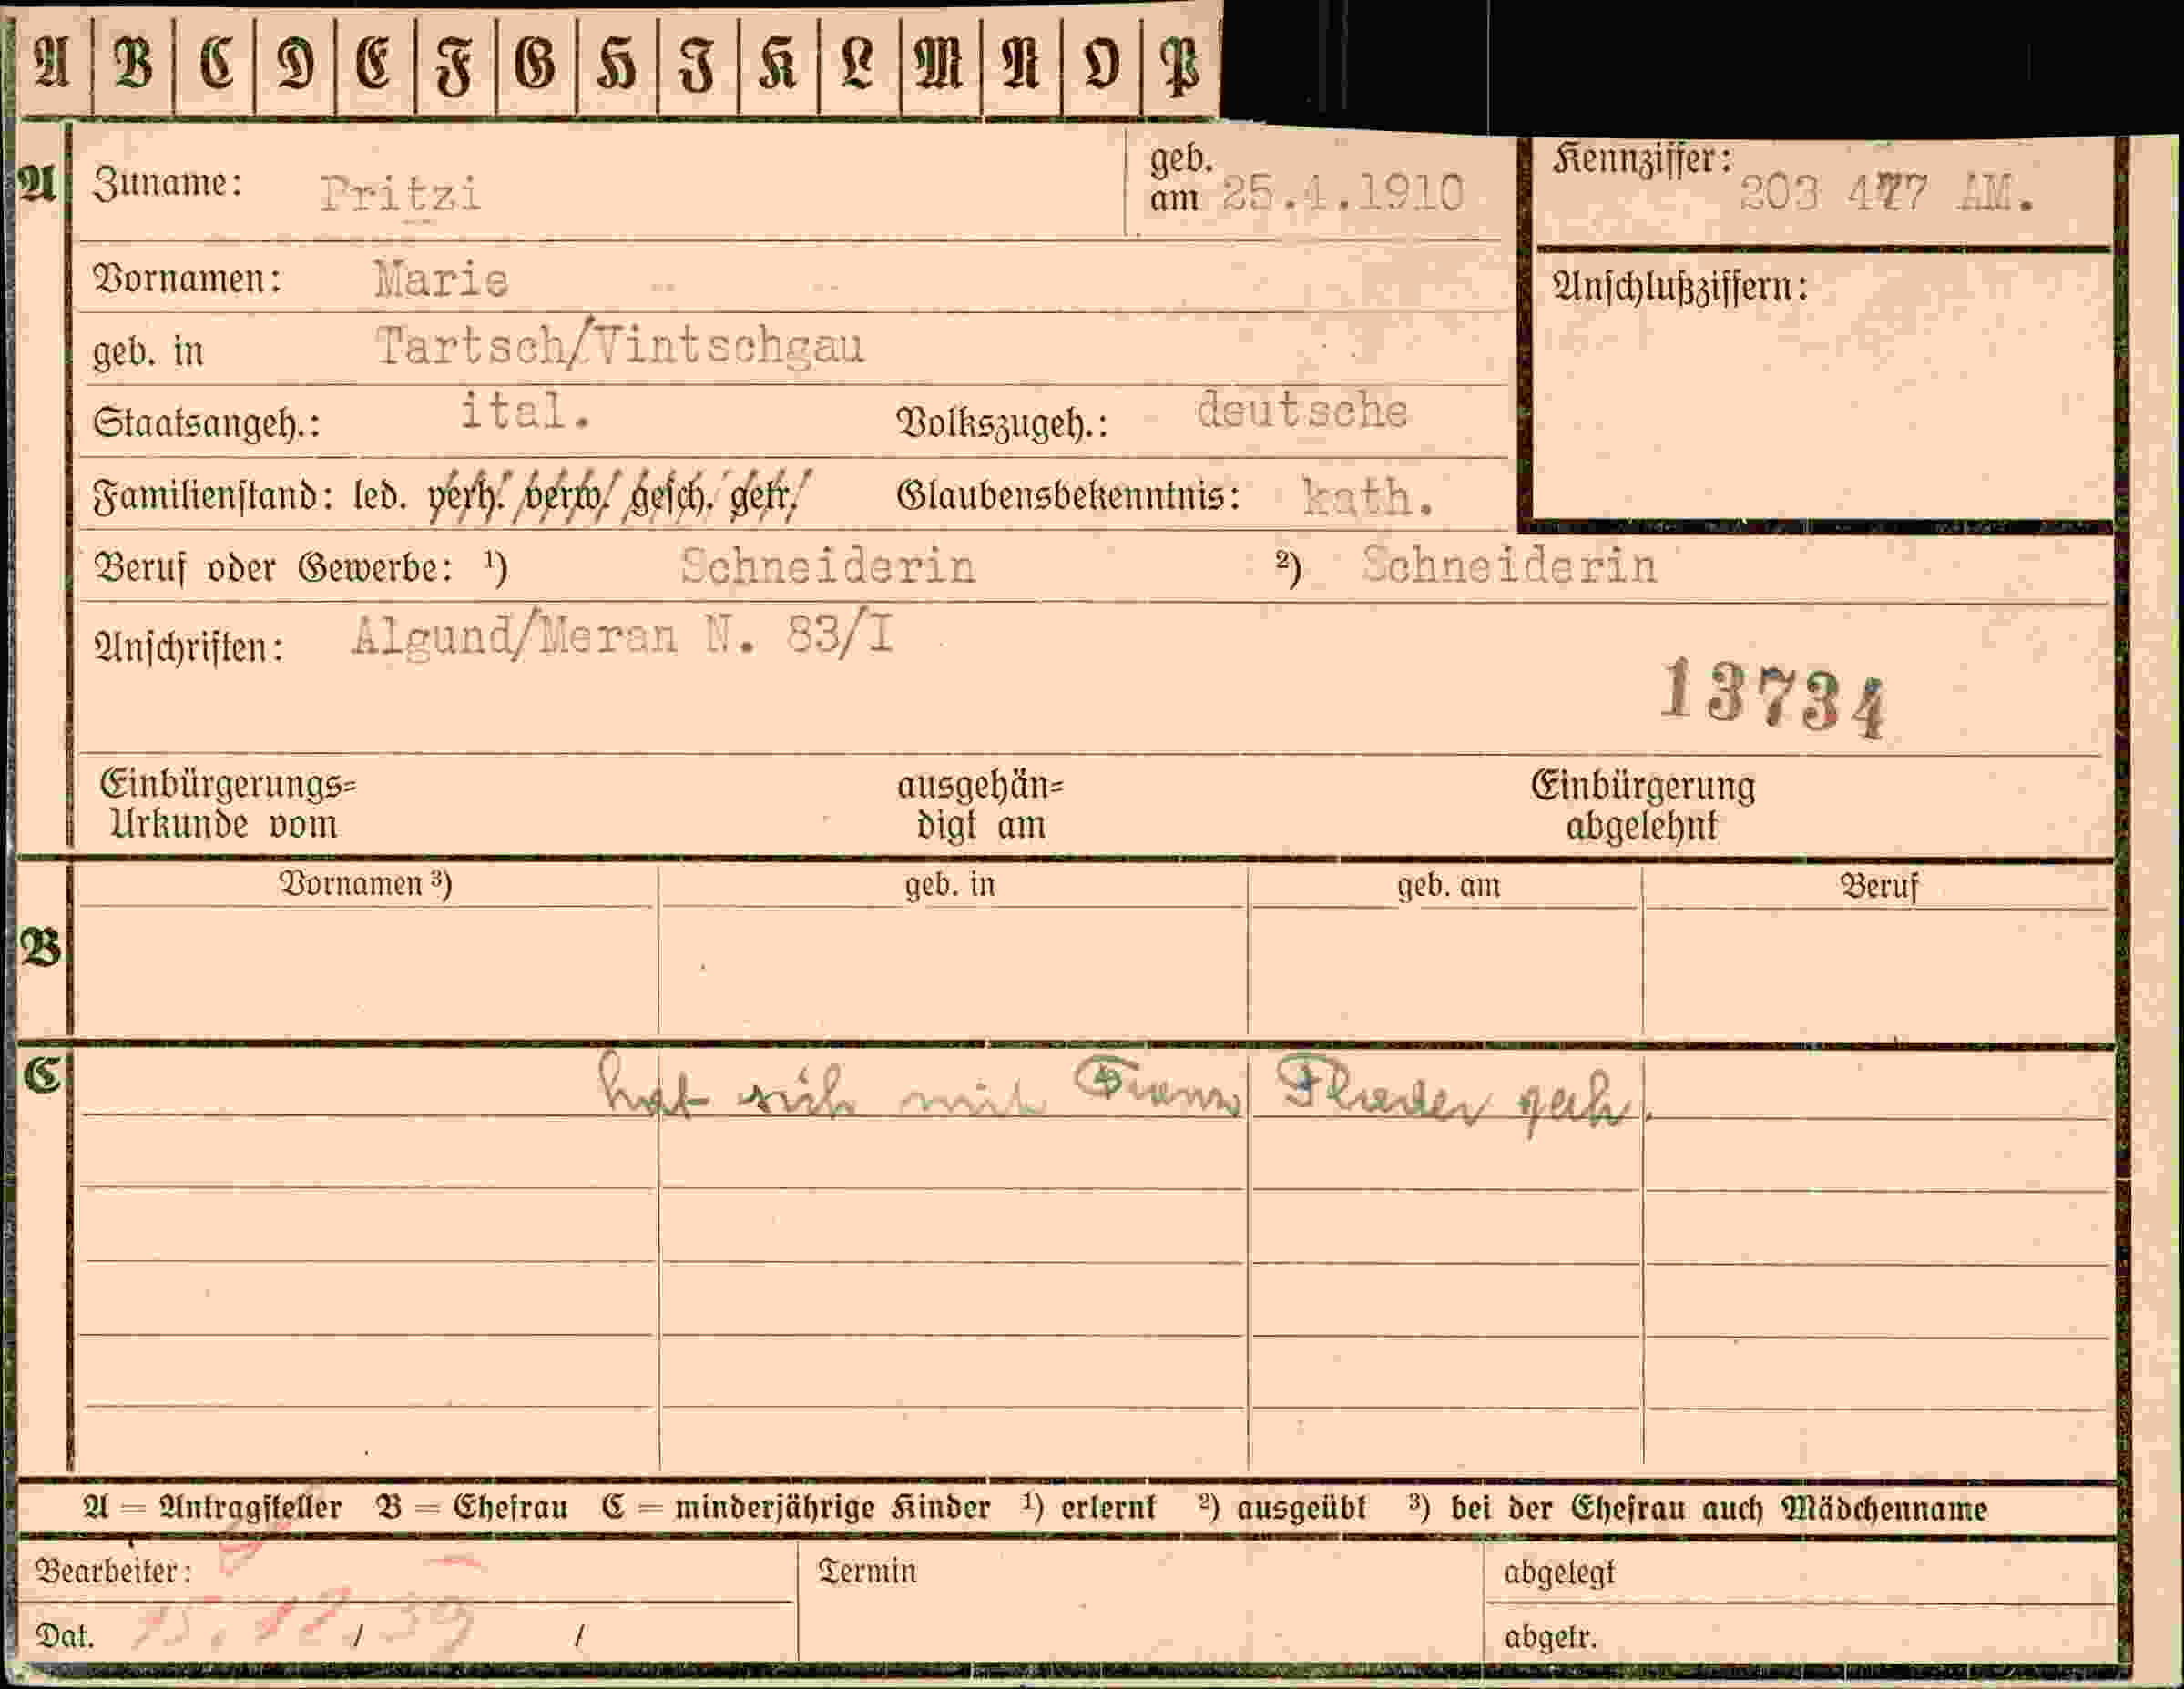 A B C D E F G H I K L M N O P
A Zuname: Pritzi geb. am 25.4.1910 Kennziffer: 203 477 AM.
Vornamen: Marie Anschlußziffern:
geb. in Tartsch/Vintschgau
Staatsangeh.: ital. Volkszugeh.: deutsche
Familienstand: led. verh. verw. gesch. getr. Glaubensbekenntnis: kath.
Beruf oder Gewerbe: ¹) Schneiderin ²) Schneiderin
Anschriften: Algund/Meran N. 83/I
13734
Einbürgerungs= ausgehän= Einbürgerung
Urkunde vom digt am abgelehnt
Vornamen ³) geb. in geb. am Beruf
B
C hat sich mit Franz
A = Antragsteller B = Ehefrau C = minderjährige Kinder ¹) erlernt ²) ausgeübt ³) bei der Ehefrau auch Mädchenname
Bearbeiter: Termin abgelegt
Dat. 15.12./39 / abgetr.